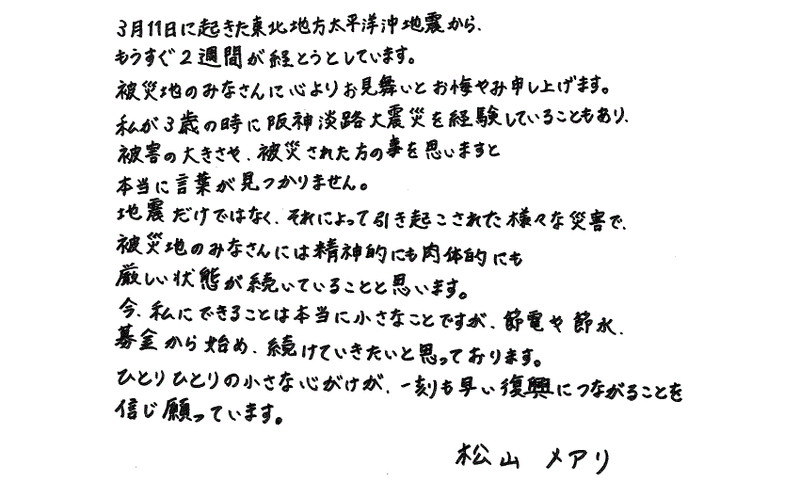 3月11日に起きた東北地方太平洋沖地震から、
もうすぐ2週間が経とうとしています。
被災地のみなさんに心よりお見舞いとお悔やみ申し上げます。
私が3歳の時に阪神淡路大震災を経験していることもあり、
被害の大きさや、被災された方の事を思いますと
本当に言葉が見つかりません。
地震だけではなく、それによって引き起こされた様々な災害で、
被災地のみなさんには精神的にも肉体的にも
厳しい状態が続いていることと思います。
今、私にできることは本当に小さなことですが、節電や節水、
募金から始め、続けていきたいと思っております。
ひとりひとりの小さな心がけが、一刻も早い復興につながることを
信じ願っています。
松山 メアリ